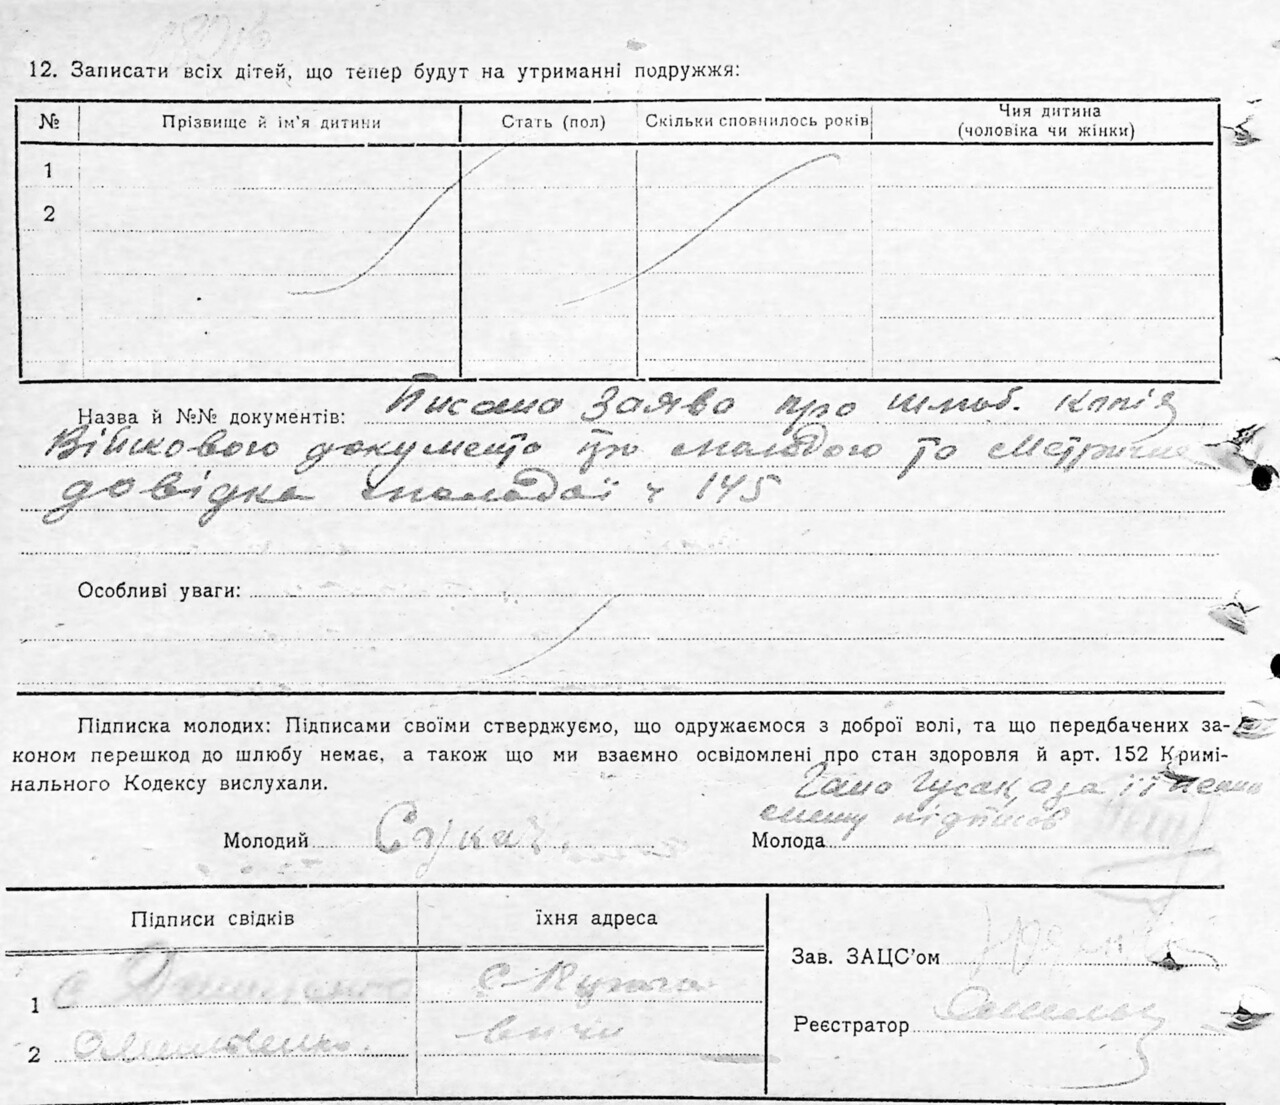 12. Записати всіх дітей, що тепер будут на утриманні подружжя:
№ Прізвище й ім'я дитини Стать (пол) Скільки сповнилось років Чия дитина
(чоловіка чи жінки)
1
2
Назва й №№ документів: Писана Заява про шлюб. копія
Військовою документа про молодого та Метрична
довідка молодої ч 145
Особливі уваги:
Підписка молодих: Підписами своїми стверджуємо, що одружаємося з доброї волі, та що передбачених за-
коном перешкод до шлюбу немає, а також що ми взаємно освідомлені про стан здоровля й арт. 152 Кримі-
нального Кодексу вислухали.
Гусак а за її
підписав
Молодий Молода
Підписи свідків їхня адреса
Зав. ЗАЦС'ом
1 с
Реєстратор
2